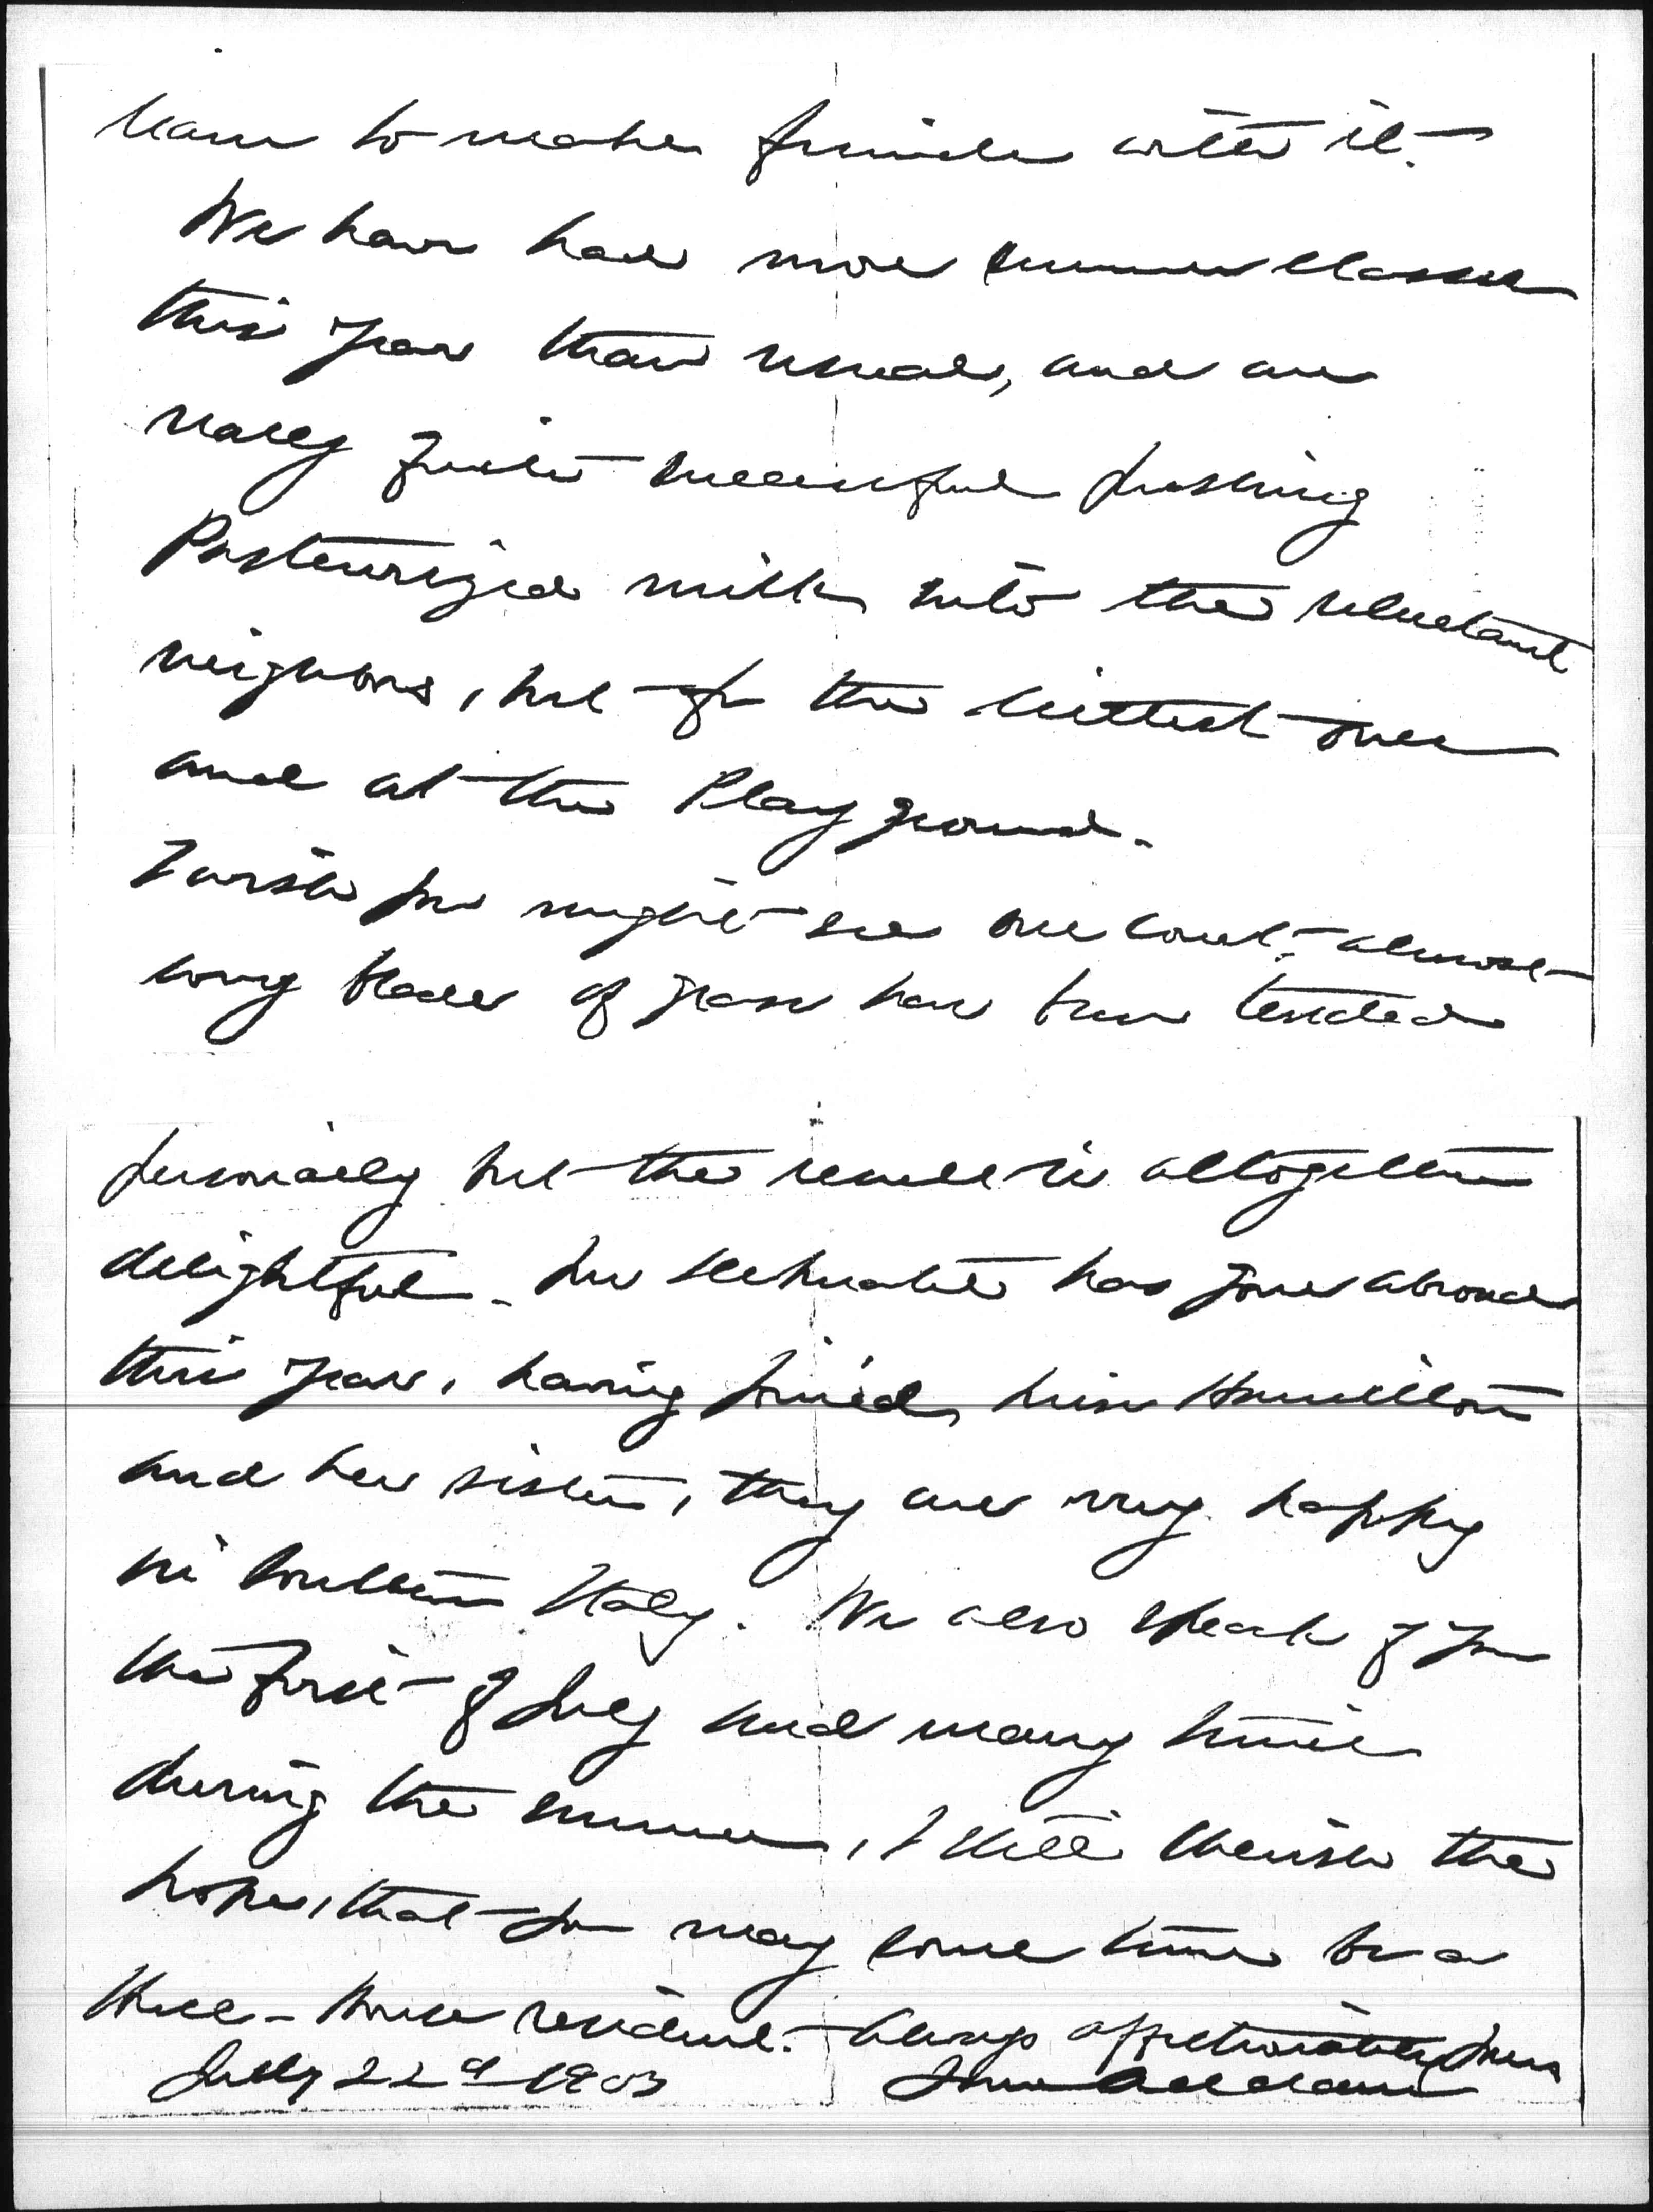 learn to make friends with it.
We have had more summer classes
this year than usual, and are
really quite successful pushing
Pasteurized milk into the reluctant
neighbors, but for the littlest ones
and at the Play ground.
I wish you might see our court, almost
every blade of grass has been tended
personally but the result is altogether
delightful. has gone abroad
this year, having joined Miss Hamilton
and her sister, they are very happy
in Southern Italy. We also speak of you
the first of July and many times
during the summer, I still cherish the
hope, that you may some time be a
Hull-House resident. Always affectionately yours
July 22d 1903 Jane Addams